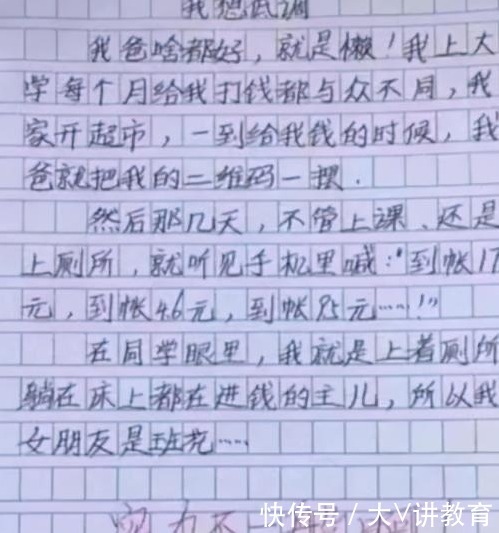 我想低调
我爸啥都好，就是懒！我上大
学每个月给我打钱都与众不同，我
家开超市，一到给我钱的时候，我
爸就把我的二维码一摆．
然后那几天，不管上课、还是
上厕所，就听见手机里喊："到帐17
元，到帐46元，到帐85元……！"
在同学眼里，我就是上着厕所
躺在床上都在进钱的主儿，所以我
女朋友是班花……
快传号／大V讲教育